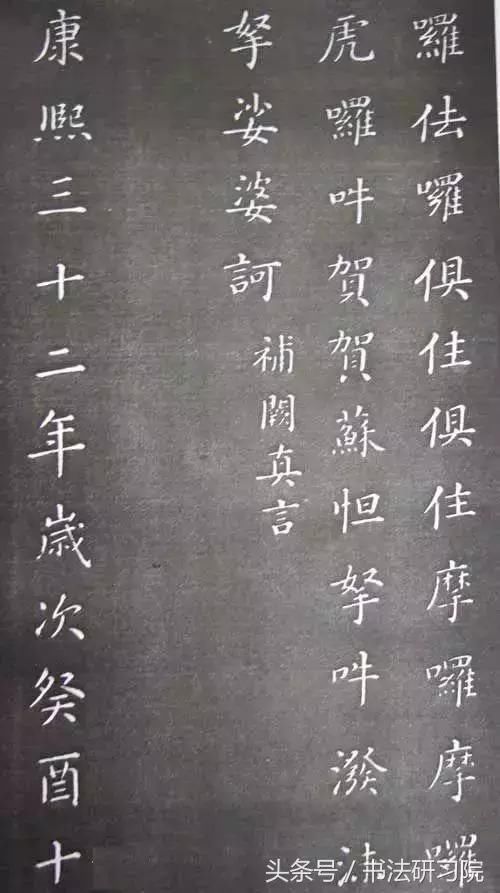 囉佉囉俱住俱住摩囉摩囉
虎囉吽賀賀蘇怛拏吽潑
拏娑婆訶 補闕真言
康熙三十二年歲次癸酉十
头条号／书法研习院